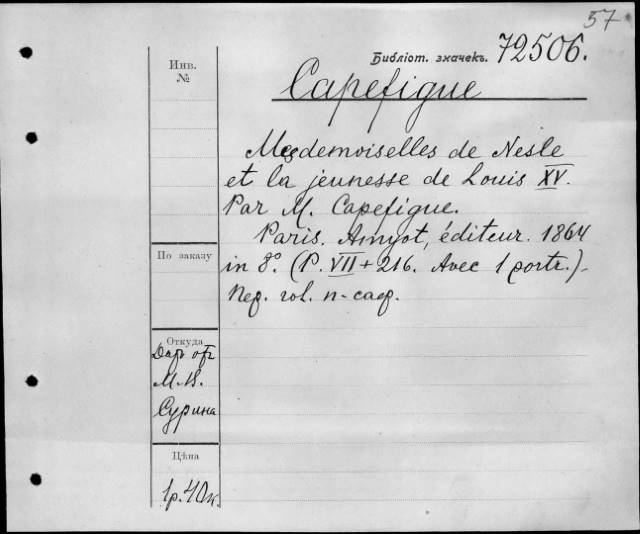 57
Библіот. значекъ. 72506.
Инв.
№
Capefigue
Mesdemoiselles de Nesle
et la jeunesse de Louis XV.
Par M. Capefigue.
Paris. Amyot, éditeur. 1864
in 8°. (P. VII + 216. Avec 1 portr.).
Пер. кол. п-саф.
По заказу
Откуда
Даръ отъ
М. В.
Сурина
Цѣна
1р. 40к.